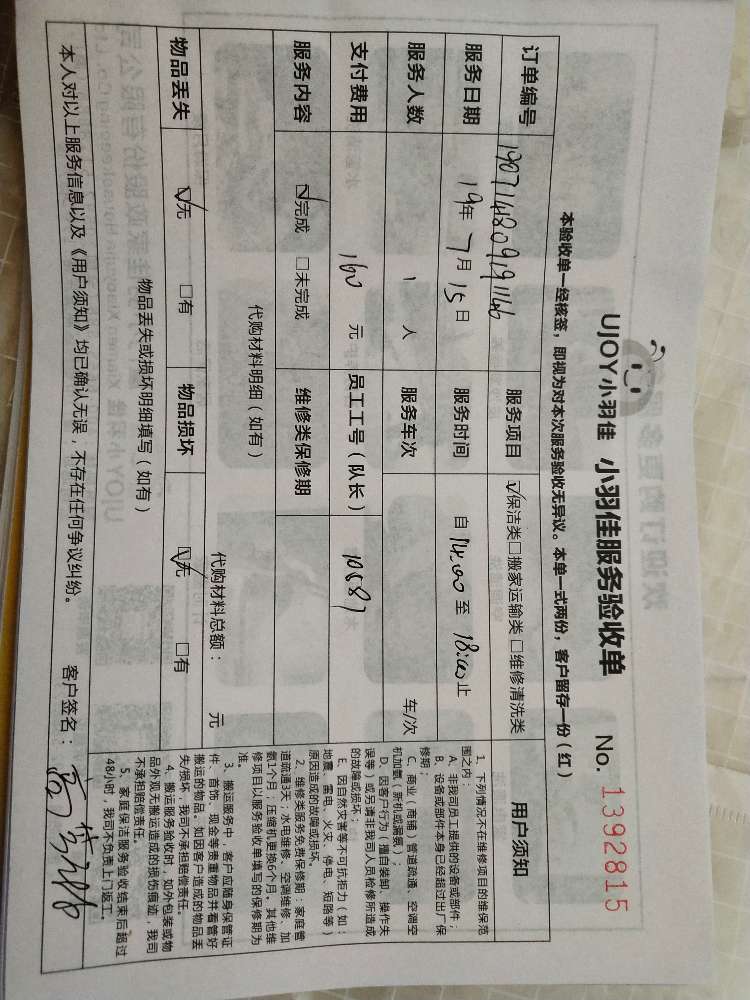 UJOY小羽佳 小羽佳服务验收单 No. 1392815
本验收单一经核签，即视为对本次服务验收无异议。本单一式两份，客户留存一份（红）
订单编号 服务项目 ☑保洁类□搬家运输类□维修清洗类
服务日期 19年7月15日 服务时间 自14:00至18:00止
服务人数 1 人 服务车次 车/次
支付费用 160 元 员工工号（队长） 10587
服务内容 ☑完成 □未完成 维修类保修期
代购材料明细（如有）
代购材料总额： 元
物品丢失 ☑无 □有 物品损坏 ☑无 □有
物品丢失或损坏明细填写（如有）
本人对以上服务信息以及《用户须知》均已确认无误，不存在任何争议纠纷。 客户签名：
用户须知
1、下列情况不在维修项目的维保范
围之内：
A、非我司员工提供的设备或部件；
B、设备或部件本身已经超过出厂保
修期；
C、商业（商铺）管道疏通、空调空
机加氨（新机或漏氨）；
D、因客户行为（擅自装卸、操作失
误等）或另请非我司人员检修所造成
的故障或损坏；
E、因自然灾害等不可抗拒力（如：
地震、雷电、火灾、停电、短路等）
原因造成的故障或损坏。
2、维修类服务免费保修期：家庭管
道疏通3天；水电维修、空调维修、加
氨1个月，压缩机更换6个月。其他维
修项目以服务验收单填写的保修期为
准。
3、搬运服务中，客户应随身保管证
件、首饰、现金等贵重物品并看管好
搬运的物品。如因客户造成的物品丢
失/损坏，我司不承担赔偿责任。
4、搬运服务验收时，如外包装或物
品外观无搬运造成的损伤痕迹，我司
不承担赔偿责任。
5、家庭保洁服务验收结束后超过
48小时，我司不负责上门返工。